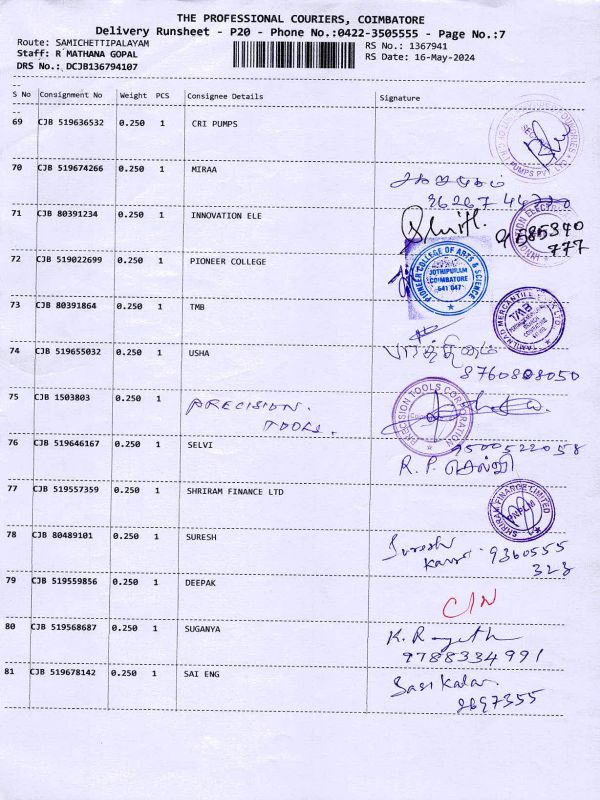 THE PROFESSIONAL COURIERS, COIMBATORE
Delivery Runsheet - P20 - Phone No.:0422-3505555 - Page No.:7
Route: SAMICHETTIPALAYAM
RS No.: 1367941
Staff: R MATHANA GOPAL
RS Date: 16-May-2024
DRS No.: DCJB136794107
S No Consignment No Weight PCS Consignee Details Signature
69 CJB 519636532 0.250 1 CRI PUMPS
PUMPS PVT
70 CJB 519674266 0.250 1 MIRAA
71 CJB 80391234 0.250 1 INNOVATION ELE
9585340
777
72 CJB 519022699 0.250 1 PIONEER COLLEGE
PIONEER COLLEGE OF ARTS & SCIENCE
JOTHIPURAM
COIMBATORE
641 047
73 CJB 80391864 0.250 1 TMB
TAMILNAD MERCANTILE BANK LTD
TMB
74 CJB 519655032 0.250 1 USHA
8760808050
75 CJB 1503803 0.250 1 PRECISION.
TOOLS.
PRECISION TOOLS CORPORATION
76 CJB 519646167 0.250 1 SELVI
9500522058
R. P. செல்வி
77 CJB 519557359 0.250 1 SHRIRAM FINANCE LTD
SHRIRAM FINANCE LIMITED
78 CJB 80489101 0.250 1 SURESH
Suresh
Kannan 9360555
323
79 CJB 519559856 0.250 1 DEEPAK
C/N
80 CJB 519568687 0.250 1 SUGANYA
K. Rajeth
9788334991
81 CJB 519678142 0.250 1 SAI ENG
Sasikala